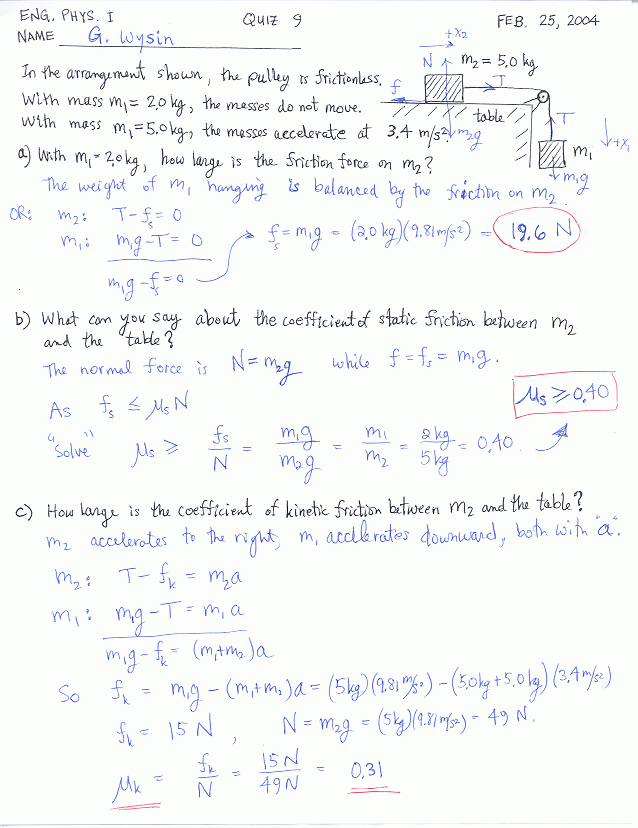 ENG. PHYS. I QUIZ 9 FEB. 25, 2004
NAME G. Wysin
+x₂
N m₂ = 5.0 kg
f T
In the arrangement shown, the pulley is frictionless.
With mass m₁ = 2.0 kg, the masses do not move. table T
With mass m₁ = 5.0 kg, the masses accelerate at 3.4 m/s². m₂g m₁ +x₁
a) With m₁ = 2.0 kg, how large is the friction force on m₂? m₁g
The weight of m₁ hanging is balanced by the friction on m₂.
OR: m₂: T - fₛ = 0
m₁: m₁g - T = 0 fₛ = m₁g = (2.0 kg)(9.81 m/s²) = 19.6 N
m₁g - fₛ = 0
b) What can you say about the coefficient of static friction between m₂
and the table?
The normal force is N = m₂g while f = fₛ = m₁g.
As fₛ ≤ μₛN μₛ ≥ 0.40
"Solve" μₛ ≥ fₛ/N = m₁g/m₂g = m₁/m₂ = 2kg/5kg = 0.40
c) How large is the coefficient of kinetic friction between m₂ and the table?
m₂ accelerates to the right, m₁ acclerates downward, both with "a".
m₂: T - fₖ = m₂a
m₁: m₁g - T = m₁a
m₁g - fₖ = (m₁+m₂)a
So fₖ = m₁g - (m₁+m₂)a = (5kg)(9.81 m/s²) - (5.0kg + 5.0kg)(3.4 m/s²)
fₖ = 15 N , N = m₂g = (5kg)(9.81 m/s²) = 49 N.
μₖ = fₖ/N = 15 N/49 N = 0.31